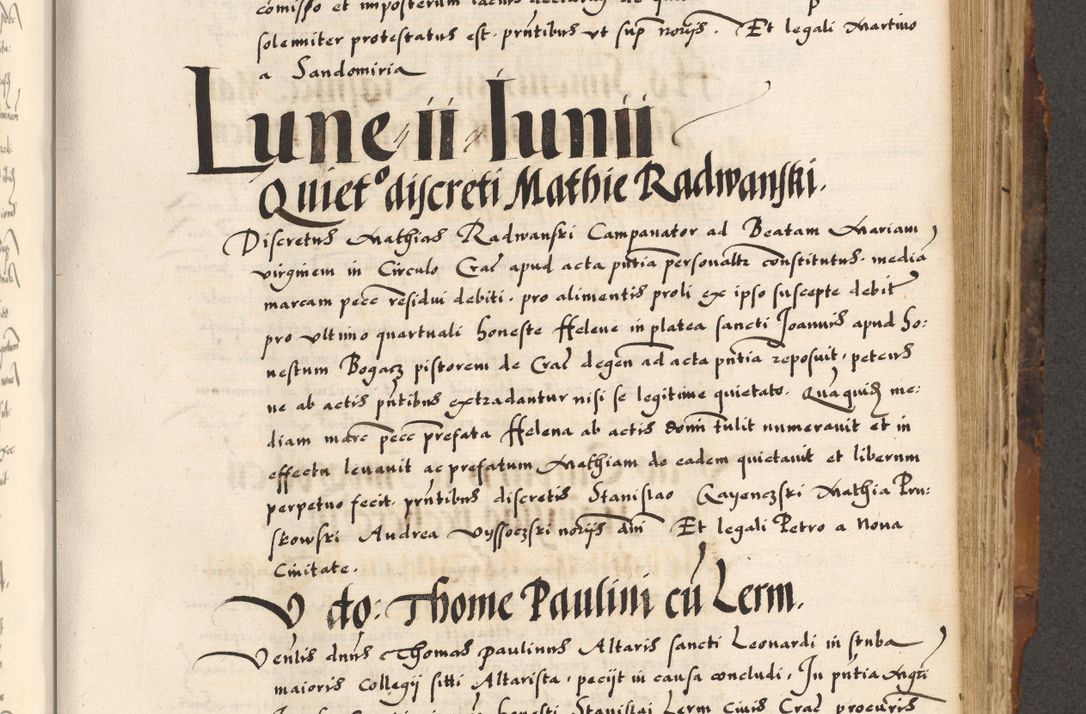 comisso et imposterum
solenniter protestatus est. pr̃ntibus ut sup̃ norijs. Et legali Martino
a Sandomiria
Lune ii Iunii
Quiet° discreti Mathie Radwanski.
Discretus Mathias Radwanski Campanator ad Beatam Mariam
virginem in Circulo Crac̃ apud acta pñtia personaltr constitutus. mediã
marcam pecc residui debiti. pro alimentis proli ex ipso suscepte debit
pro ultimo quartuali honeste Helene in platea sancti Joannis apud ho:
nestum Bogacz pistorem de Crac̃ degen ad acta pñtia reposuit. petens
ne ab actis pñtibus extradantur nisi se legitime quietato. Quaquid me:
diam marc̃ pecc p̃refata Helena ab actis domi tulit numeravit et in
effectu levavit ac prefatum Mathiam de eadem quietavit et liberum
perpetuo fecit. pr̃ntibus discretis Stanislao Gayenczski Mathia Pru:
skowski Andrea Vyssoczski norijs dni Et legali Petro a Nova
Civitate.
V cto: Thome Paulini cũ Lerm.
Venlis dnus Thomas Paulinus Altaris sancti Leonardi in stuba
maioris Collegij siti Altarista. pecijt in causa concludi. In pñtia Mgri
honesti Stanislai Lerm Civis Crac̃ procuris